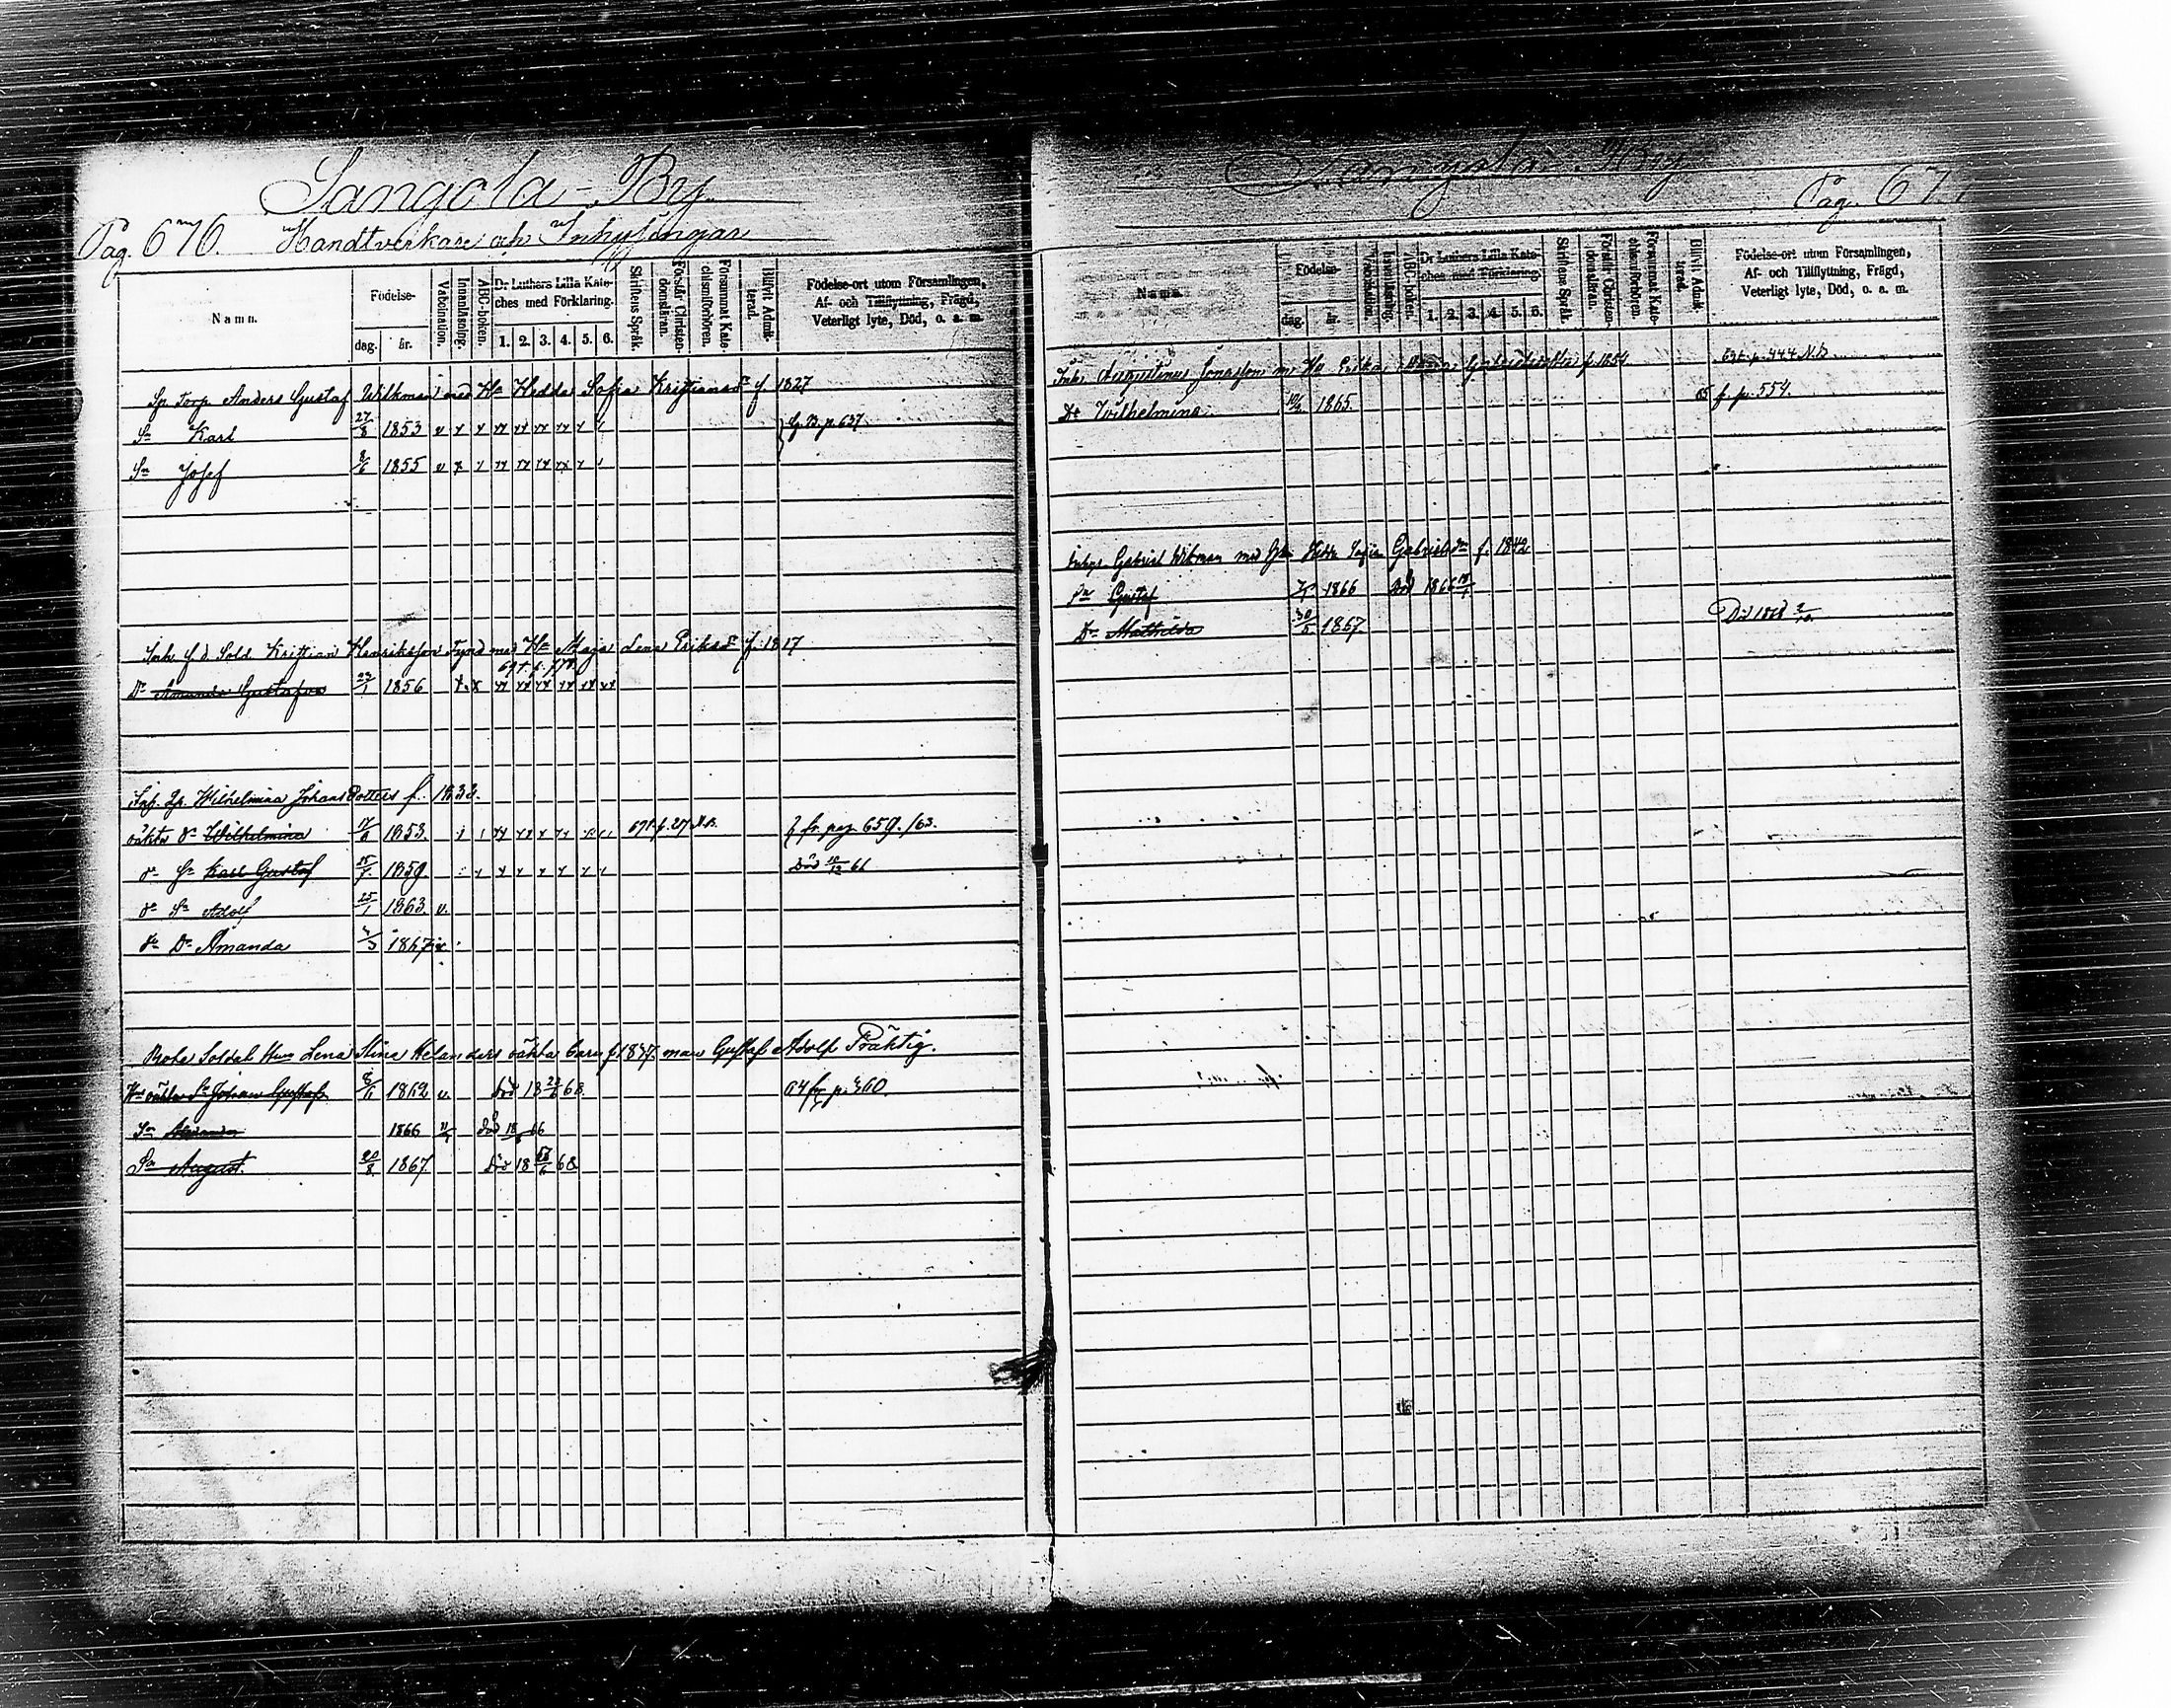 Sangola-By.
Pag. 676. Handtverkare och Inhysingar
Namn.
Födelse-
dag. år.
Vabcination.
Innanläsning.
ABC-boken.
Dr Luthers Lilla Kate-
ches med Förklaring.
1. 2. 3. 4. 5. 6.
Skriftens Språk.
Förstår Christen-
domsläran.
Försummat Kate-
chismiförhören.
Blifvit Admit-
terad.
Födelse-ort utom Församlingen,
Af- och Tillflyttning, Frägd,
Veterligt lyte, Död, o. a. m.
Sp. Torp. Anders Gustaf Wilkman med Ha Hedda Sofia Kristiansdr f 1827
Sn Karl 27/8 1853 v x x xx xx xx xx x p. 637
Sn Josef 8/6 1855 v x x xx xx xx xx x
Inh. f.d. Sold. Kristian Henriksson med Ha Maja Lena Eriksdr f. 1817
Dr Amanda Gustafva 1856 x x xx xx xx xx xx xx
Inh. Wilhelmina Johansdotters f. 1832.
oäkta Dr Wilhelmina 1853. fr. pag. 659. /63.
Sn Karl Gustaf 1859 Död 66
Sn Adolf 25/1 1863. v.
Dr Amanda 1867
Rote Soldat Lena Stina Helanders oäkta barn f 1837. man Gustaf Adolf Präktig.
oäkta Sn Johan Gustaf 1862 v. Död 18 68 64 fr. p. 360.
Sn 1866 Död 66
Sn August. 20/8 1867. Död 18 68
Sangola By
Pag. 67
Namn.
Födelse-
dag. år.
Vaccination.
Innanläsning.
ABC-boken.
Dr Luthers Lilla Kate-
ches med Förklaring.
1. 2. 3. 4. 5. 6.
Skriftens Språk.
Förstår Christen-
domsläran.
Försummat Kate-
chismiförhören.
Blifvit Admit-
terad.
Födelse-ort utom Församlingen,
Af- och Tillflyttning, Frägd,
Veterligt lyte, Död, o. a. m.
Inh. Augustinus Jonasson m. Ha Erika p. 444 N.B.
Dr Wilhelmina 1865. 65 f. p. 554.
Inhys. Gabriel Wikman med Sofia Gabrielsdr f. 1842
Sn Gustaf 1866 Död 1866
Dr Mathilda 30/5 1867. Död 1868